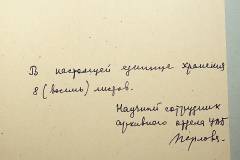 В настоящей единице хранения
8 (восемь) листов.
Научный сотрудник
архивного отдела